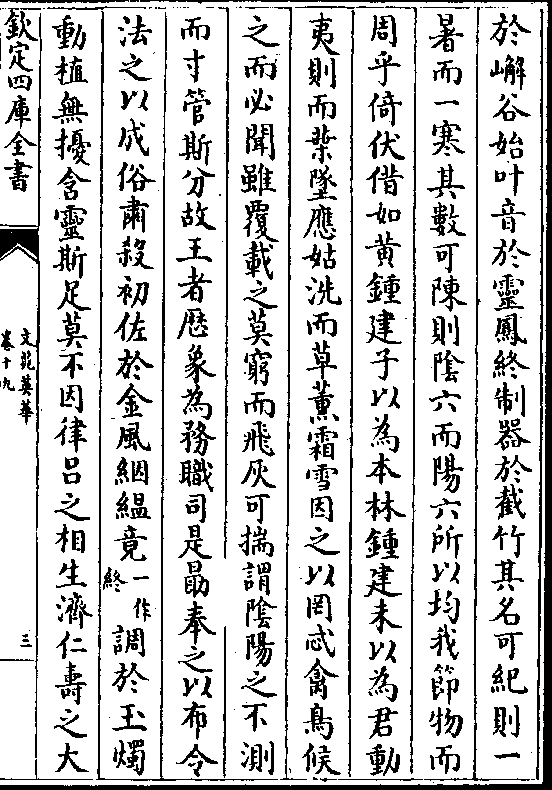 於嶰谷始叶音於靈鳳終制器於截竹其名可紀則一
暑而一寒其數可陳則陰六而陽六所以均我節物而
周乎倚伏借如黃鍾建子以為本林鍾建未以為君動
夷則而葉墜應姑洗而草薫霜雪因之以罔忒禽鳥候
之而必聞雖覆載之莫窮而飛灰可揣謂陰陽之不測
而寸管斯分故王者厯象為務職司是勗奉之以布令
法之以成俗肅殺初佐於金風絪緼竟一作終調於玉燭
動植無擾含靈斯足莫不因律呂之相生濟仁壽之大
欽定四庫全書
文苑英華
卷十九
三